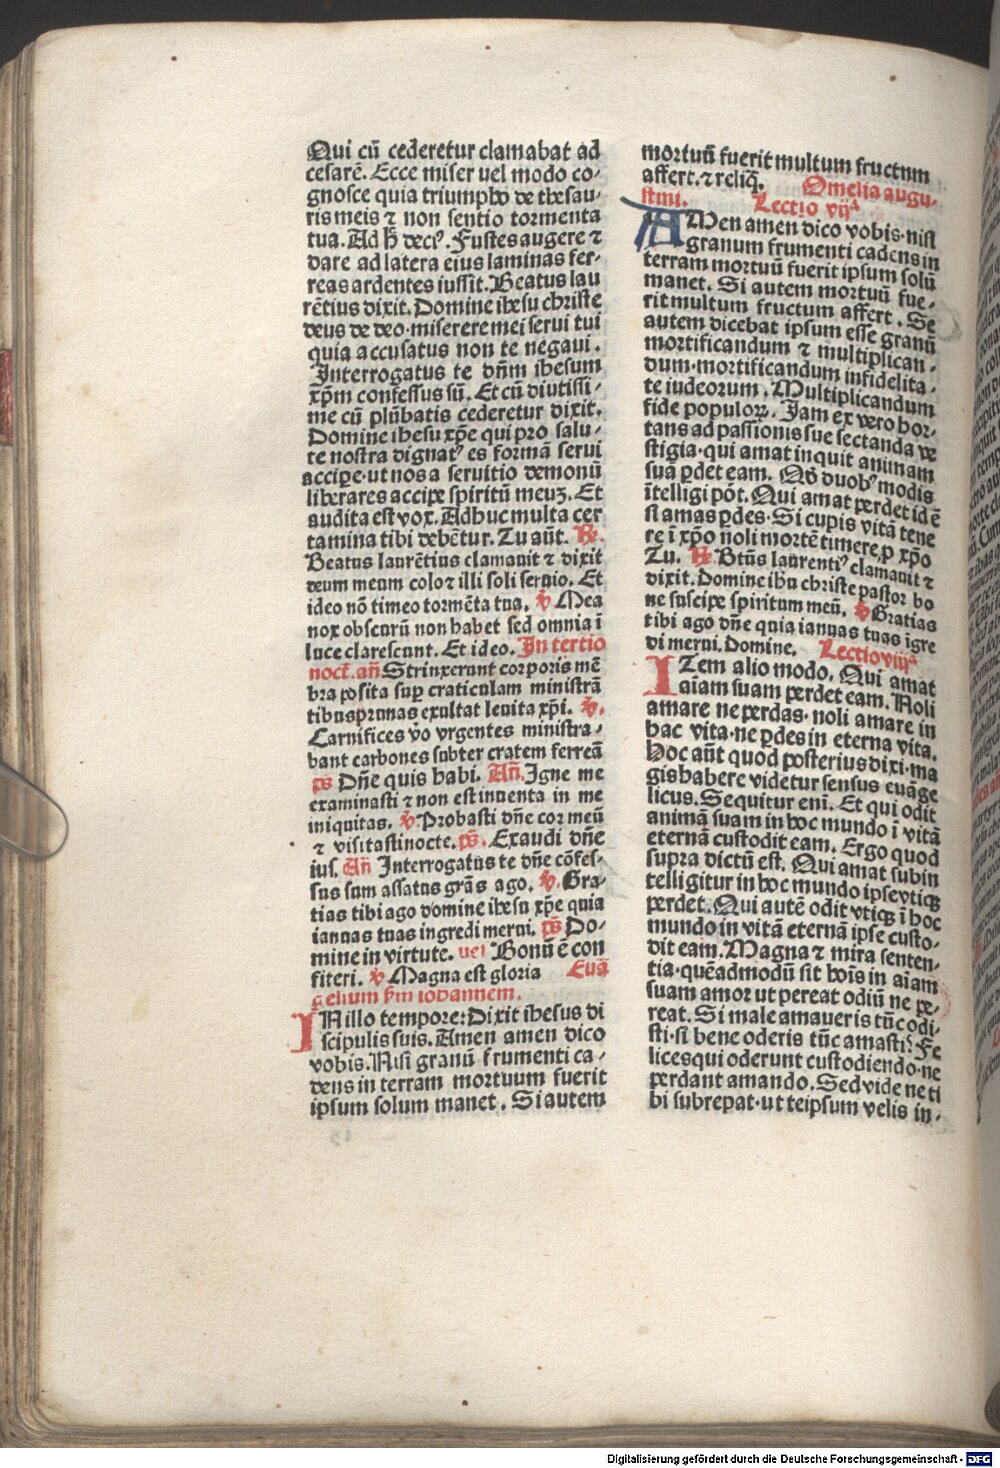 Qui cū cederetur clamabat ad
cesarē. Ecce miser vel modo co-
gnosce quia triumpho de thesau-
ris meis ⁊ non sentio tormenta
tua. Ad h̄ deciꝰ. Fustes augere ⁊
dare ad latera eius laminas fer-
reas ardentes iussit. Beatus lau
rētius dixit. Domine ihesu christe
deus de deo·miserere mei serui tui
quia accusatus non te negaui.
Interrogatus te dn̄m ihesum
xp̄m confessus sū. Et cū diutissi-
me cū plūbatis cederetur dixit.
Domine ihesu xp̄e qui pro salu-
te nostra dignatꝰ es formā serui
accipe·ut nos a seruitio demonū
liberares accipe spiritū meuꝫ. Et
audita est vox. Adhuc multa cer
tamina tibi debētur. Tu aūt. ℟.
Beatus laurētius clamauit ⁊ dixit
deum meum colo⁊ illi soli seruio. Et
ideo nō timeo tormēta tua. ℣ Mea
nox obscurū non habet sed omnia ī
luce clarescunt. Et ideo. In tertio
noct̄. an̄ Strinxerunt corporis mē
bra posita suꝑ craticulam ministrā
tibus prunas exultat leuita xp̄i. ℣.
Carnifices v̄o vrgentes ministra-
bant carbones subter cratem ferreā
ps̄ Dn̄e quis habi. An̄. Igne me
examinasti ⁊ non est inuenta in me
iniquitas. ℣. Probasti dn̄e cor meū
⁊ visitasti nocte. ps̄. Exaudi dn̄e
ius. An̄ Interrogatus te dn̄e cōfes-
sus sum assatus grās ago. ℣. Gra-
tias tibi ago domine ihesu xp̄e quia
ianuas tuas ingredi merui. ps̄ Do-
mine in virtute. vel Bonū ē con
fiteri. ℣ Magna est gloria Euā
gelium s̄m iohannem.
IN illo tempore: Dixit ihesus di
scipulis suis. Amen amen dico
vobis. Nisi granū frumenti ca-
dens in terram mortuum fuerit
ipsum solum manet. Si autem
mortuū fuerit multum fructum
affert. ⁊ reliq̄. Omelia augu-
stini. Lectio vijᵃ
AMen amen dico vobis·nisi
granum frumenti cadens in
terram mortuū fuerit ipsum solū
manet. Si autem mortuū fue-
rit multum fructum affert. Se
autem dicebat ipsum esse granū
mortificandum ⁊ multiplican-
dum·mortificandum infidelita-
te iudeorum. Multiplicandum
fide populoꝝ. Jam ex vero hor-
tans ad passionis sue sectanda ve
stigia·qui amat inquit animam
sua ꝑdet eam. Qd̄ duobꝰ modis
ītelligi pōt. Qui amat perdet id ē
si amas ꝑdes·Si cupis vitā tene
re ī xp̄o n̄oli mortē timere ꝑ xp̄o
Tu. ℟ Btūs laurentiꝰ clamauit ⁊
dixit. Domine ihu christe pastor bo
ne suscipe spiritum meū. ℣ Gratias
tibi ago dn̄e quia ianuas tuas īgre
di merui. Domine. Lectio viijᵃ
ITem alio modo. Qui amat
aīam suam perdet eam. Noli
amare ne perdas·noli amare in
hac vita·ne ꝑdes in eterna vita.
Hoc aūt quod posterius dixi·ma
gis habere videtur sensus euāge
licus. Sequitur enī. Et qui odit
animā suam in hoc mundo ī vitā
eternā custodit eam. Ergo quod
supra dictū est. Qui amat subin
telligitur in hoc mundo ipse vtiqꝫ
perdet. Qui autē odit vtiqꝫ ī hoc
mundo in vitā eternā ipse custo-
dit eam. Magna ⁊ mira senten-
tia·quēadmodū sit hoīs in aīam
suam amor ut pereat odiū ne pe-
reat. Si male amaueris tūc odi-
sti·si bene oderis tūc amasti. Fe
lices qui oderunt custodiendo·ne
perdant amando. Sed vide ne ti
bi subrepat·ut teipsum velis in-
Digitalisierung gefördert durch die Deutsche Forschungsgemeinschaft - DFG